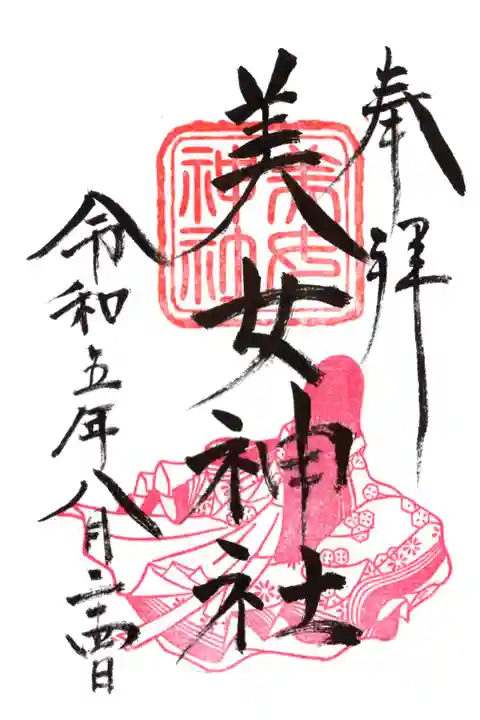 奉拝
美女神社
美女
神社
令和五年八月二十四日